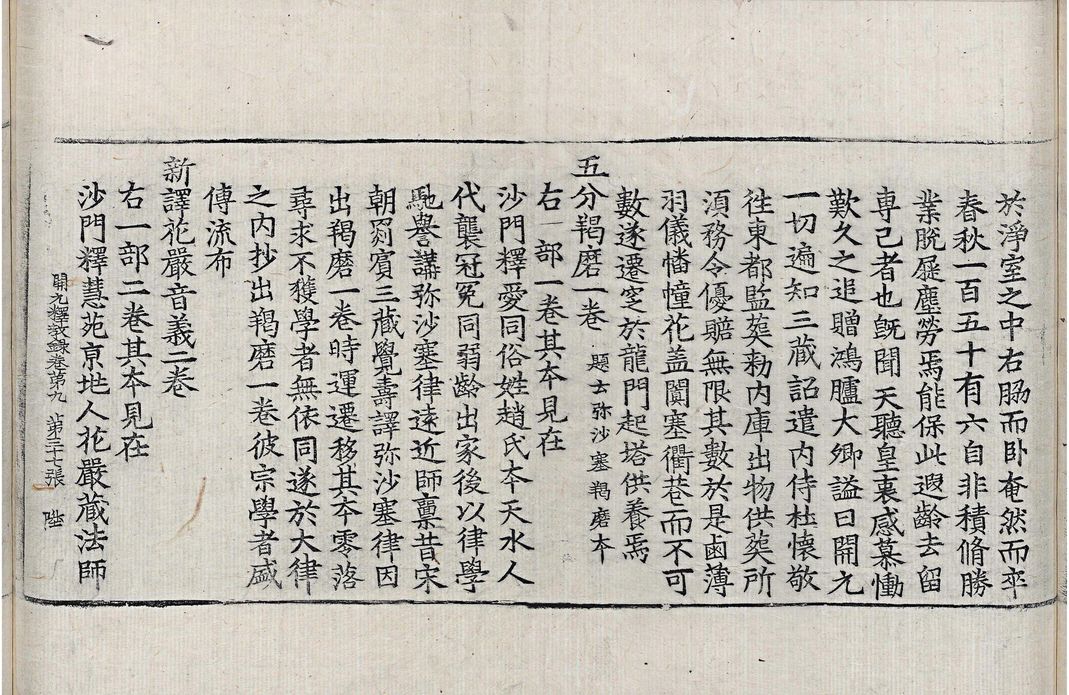 於淨室之中右脇而卧奄然而卒
春秋一百五十有六自非積脩勝
業脫屣塵勞焉能保此遐齡去留
専己者也旣聞天聽皇衷感慕慟
歎久之追贈鴻臚大卿謚曰開元
一切遍知三藏詔遣内侍杜懷敬
徃東都監葬勑内庫出物供葬所
湏務令優贍無限其數於是鹵薄
羽儀幡幢花盖闐塞衢巷而不可
數遂遷窆於龍門起塔供養焉
五分羯磨一卷 題云弥沙塞羯磨本
右一部一卷其夲見在
沙門釋愛同俗姓趙氏夲天水人
代襲冠冕同弱齡出家後以律學
馳譽講弥沙塞律遠近師禀昔宋
朝罽賓三藏覺壽譯弥沙塞律因
出羯磨一卷時運遷移其夲零落
尋求不獲學者無依同遂於大律
之内抄出羯磨一卷彼宗學者盛
傳流布
新譯花嚴音義二卷
右一部二卷其夲見在
沙門釋慧苑京地人花嚴藏法師
開元釋教錄卷第九 第三十張 陞